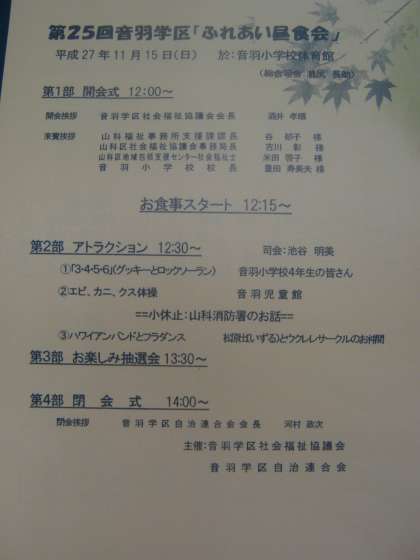 第25回音羽学区「ふれあい昼食会」
平成27年11月15日(日) 於:音羽小学校体育館
(総合司会 長助)
第1部 開会式 12:00~
開会挨拶 音羽学区社会福祉協議会会長 酒井 孝
来賓挨拶 山科福祉事務所支援課課長 谷 郁子 様
山科区社会福祉協議会事務局長 吉川 彰 様
山科区地域包括支援センター社会福祉士 米田 啓子 様
音羽小学校校長 豊田 寿美夫 様
お食事スタート 12:15~
第2部 アトラクション 12:30~ 司会:池谷 明美
①「3・4・5・6」(グッキーとロックソーラン) 音羽小学校4年生の皆さん
②エビ、カニ、クス体操 音羽児童館
==小休止:山科消防署のお話==
③ハワイアンバンドとフラダンス 松原ぱいずる)とウクレレサークルのお仲間
第3部 お楽しみ抽選会 13:30~
第4部 閉会式 14:00~
閉会挨拶 音羽学区自治連合会会長 河村 政次
主催:音羽学区社会福祉協議会
音羽学区自治連合会